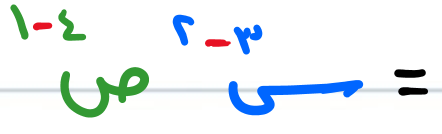 = س^٣-٢ ص^٤-١